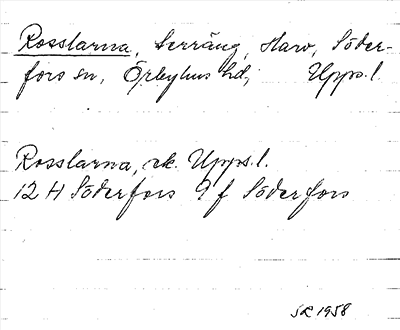 Rosslarna, terräng, Harv, Söder-
fors sn, Örbyhus hd, Upps. l.
Rosslarna, ek. Upps. l.
12 H Söderfors 9 f Söderfors
SR 1958